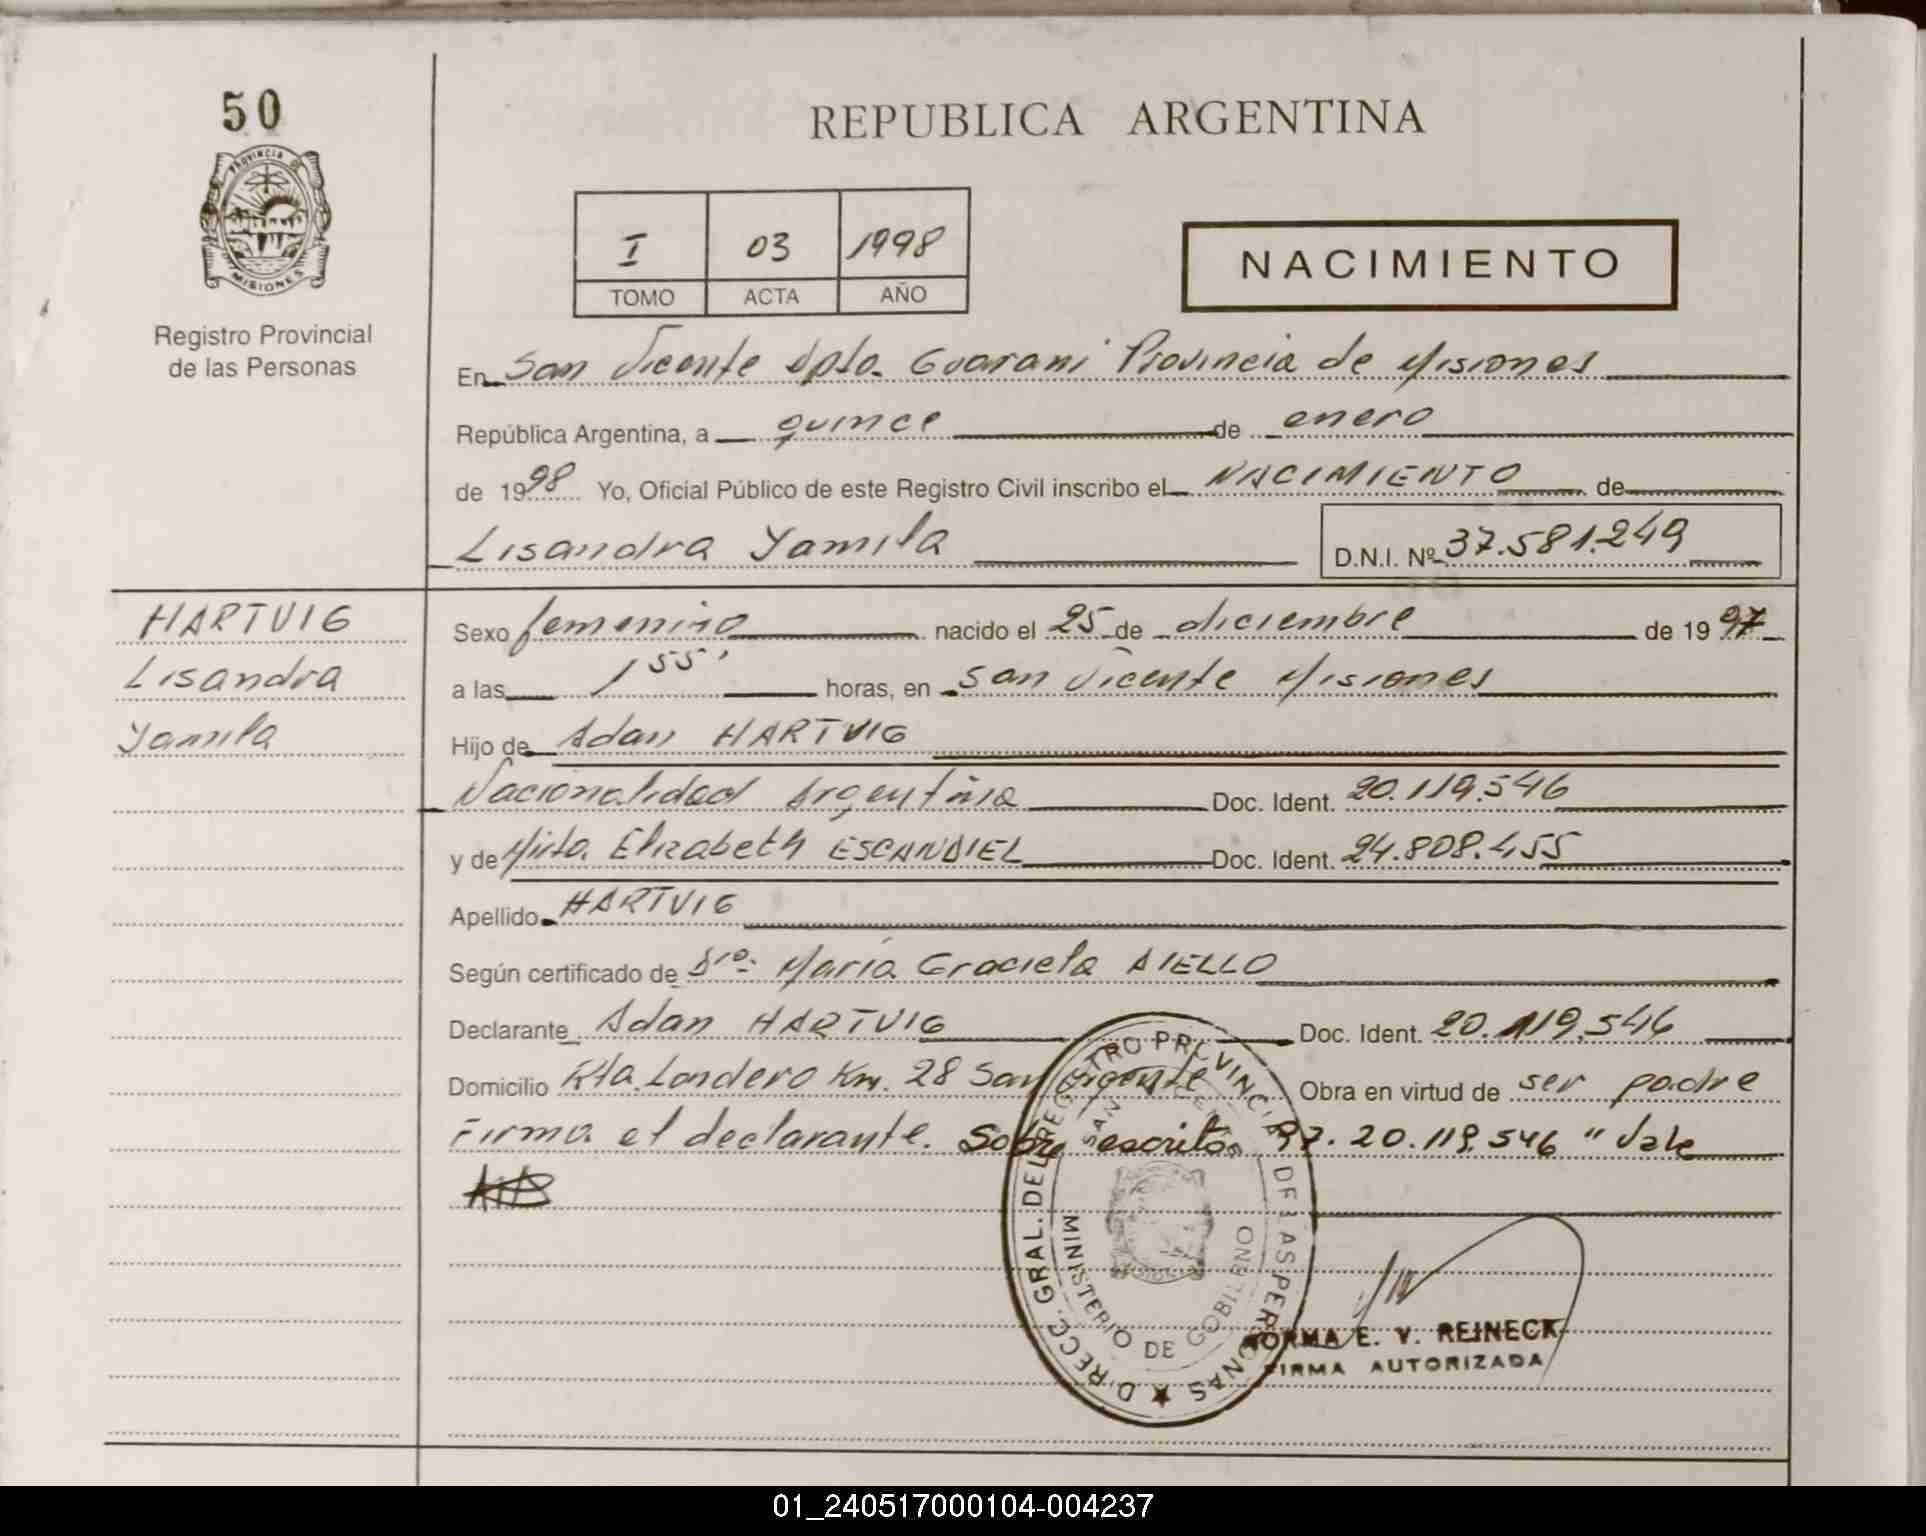 50
PROVINCIA DE
MISIONES
Registro Provincial
de las Personas
REPUBLICA ARGENTINA
I 03 1998
TOMO ACTA AÑO
NACIMIENTO
En San Vicente Dpto. Guarani Provincia de Misiones
República Argentina, a quince de enero
de 1998 Yo, Oficial Público de este Registro Civil inscribo el NACIMIENTO de
Lisandra Yamila D.N.I. Nº 37.581.249
HARTVIG
Lisandra
Yamila
Sexo femenino nacido el 25 de diciembre de 1997
a las 1 55' horas, en San Vicente Misiones
Hijo de Adan HARTVIG
Nacionalidad Argentina Doc. Ident. 20.119.546
y de Mirta Elizabeth ESCANDIEL Doc. Ident. 24.808.455
Apellido HARTVIG
Según certificado de Dra. María Graciela AIELLO
Declarante Adan HARTVIG Doc. Ident. 20.119.546
Domicilio Rta. Londero Km. 28 San Vicente Obra en virtud de ser padre
Firma el declarante. Sobre escrito 97. 20.119.546 " Vale
DIRECC. GRAL. DEL REGISTRO PROVINCIAL DE LAS PERSONAS
SAN VICENTE
MINISTERIO DE GOBIERNO
NORMA E. V. REINECK
FIRMA AUTORIZADA
01_240517000104-004237